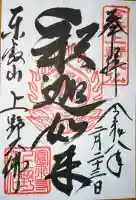 奉拝
令和八年
二月二十三日
釈迦如来
東叡山 上野大佛